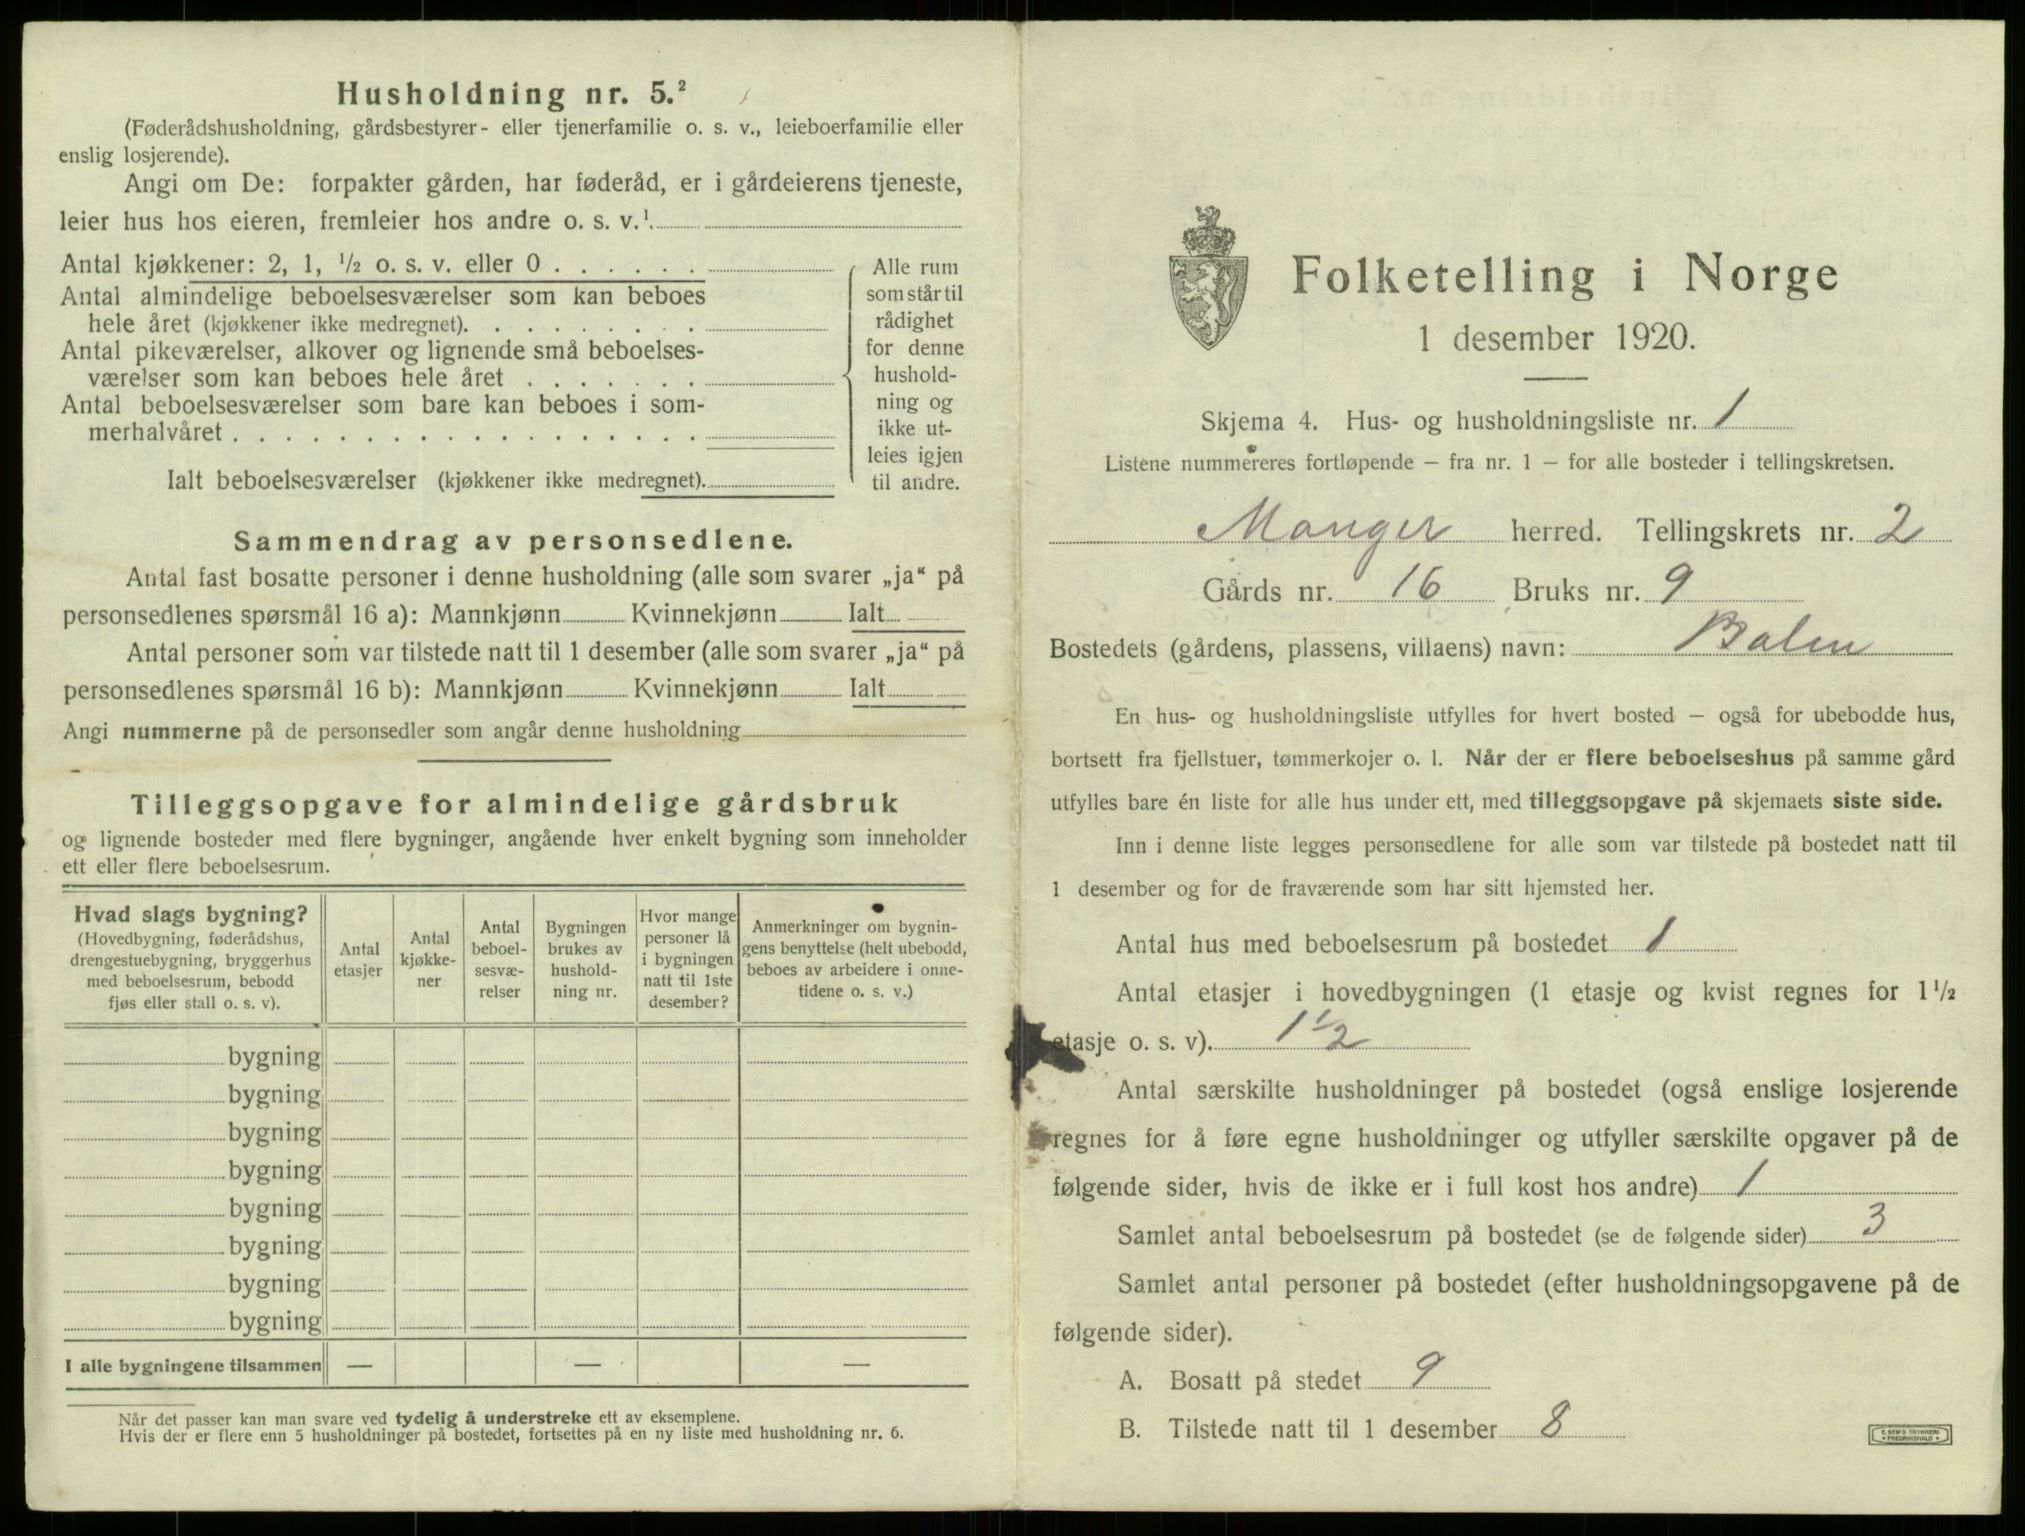 Husholdning nr. 5.²
(Føderådshusholdning, gårdsbestyrer- eller tjenerfamilie o. s. v., leieboerfamilie eller
enslig losjerende).
Angi om De: forpakter gården, har føderåd, er i gårdeierens tjeneste,
leier hus hos eieren, fremleier hos andre o. s. v.¹
Antal kjøkkener: 2, 1, ½ o. s. v. eller 0
Antal almindelige beboelsesværelser som kan beboes
hele året (kjøkkener ikke medregnet).
Antal pikeværelser, alkover og lignende små beboelses-
værelser som kan beboes hele året
Antal beboelsesværelser som bare kan beboes i som-
merhalvåret
Ialt beboelsesværelser (kjøkkener ikke medregnet).
Alle rum
som står til
rådighet
for denne
hushold-
ning og
ikke ut-
leies igjen
til andre.
Sammendrag av personsedlene.
Antal fast bosatte personer i denne husholdning (alle som svarer „ja“ på
personsedlenes spørsmål 16 a): Mannkjønn Kvinnekjønn Ialt
Antal personer som var tilstede natt til 1 desember (alle som svarer „ja“ på
personsedlenes spørsmål 16 b): Mannkjønn Kvinnekjønn Ialt
Angi nummerne på de personsedler som angår denne husholdning
Tilleggsopgave for almindelige gårdsbruk
og lignende bosteder med flere bygninger, angående hver enkelt bygning som inneholder
ett eller flere beboelsesrum.
Hvad slags bygning?
(Hovedbygning, føderådshus,
drengestuebygning, bryggerhus
med beboelsesrum, bebodd
fjøs eller stall o. s. v).
Antal
etasjer
Antal
kjøkke-
ner
Antal
beboel-
sesvæ-
relser
Bygningen
brukes av
hushold-
ning nr.
Hvor mange
personer lå
i bygningen
natt til 1ste
desember?
Anmerkninger om bygnin-
gens benyttelse (helt ubebodd,
beboes av arbeidere i onne-
tidene o. s. v.)
bygning
bygning
bygning
bygning
bygning
bygning
bygning
bygning
I alle bygningene tilsammen — — —
Når det passer kan man svare ved tydelig å understreke ett av eksemplene.
Hvis der er flere enn 5 husholdninger på bostedet, fortsettes på en ny liste med husholdning nr. 6.
Folketelling i Norge
1 desember 1920.
Skjema 4. Hus- og husholdningsliste nr. 1
Listene nummereres fortløpende – fra nr. 1 – for alle bosteder i tellingskretsen.
Manger herred. Tellingskrets nr. 2
Gårds nr. 16 Bruks nr. 9
Bostedets (gårdens, plassens, villaens) navn: Balen
En hus- og husholdningsliste utfylles for hvert bosted – også for ubebodde hus,
bortsett fra fjellstuer, tømmerkojer o. l. Når der er flere beboelseshus på samme gård
utfylles bare én liste for alle hus under ett, med tilleggsopgave på skjemaets siste side.
Inn i denne liste legges personsedlene for alle som var tilstede på bostedet natt til
1 desember og for de fraværende som har sitt hjemsted her.
Antal hus med beboelsesrum på bostedet 1
Antal etasjer i hovedbygningen (1 etasje og kvist regnes for 1½
etasje o. s. v). 1½
Antal særskilte husholdninger på bostedet (også enslige losjerende
regnes for å føre egne husholdninger og utfyller særskilte opgaver på de
følgende sider, hvis de ikke er i full kost hos andre) 1
Samlet antal beboelsesrum på bostedet (se de følgende sider) 3
Samlet antal personer på bostedet (efter husholdningsopgavene på de
følgende sider).
A. Bosatt på stedet 9
B. Tilstede natt til 1 desember 8
E. SEM'S TRYKKERI
• FREDRIKSHALD •